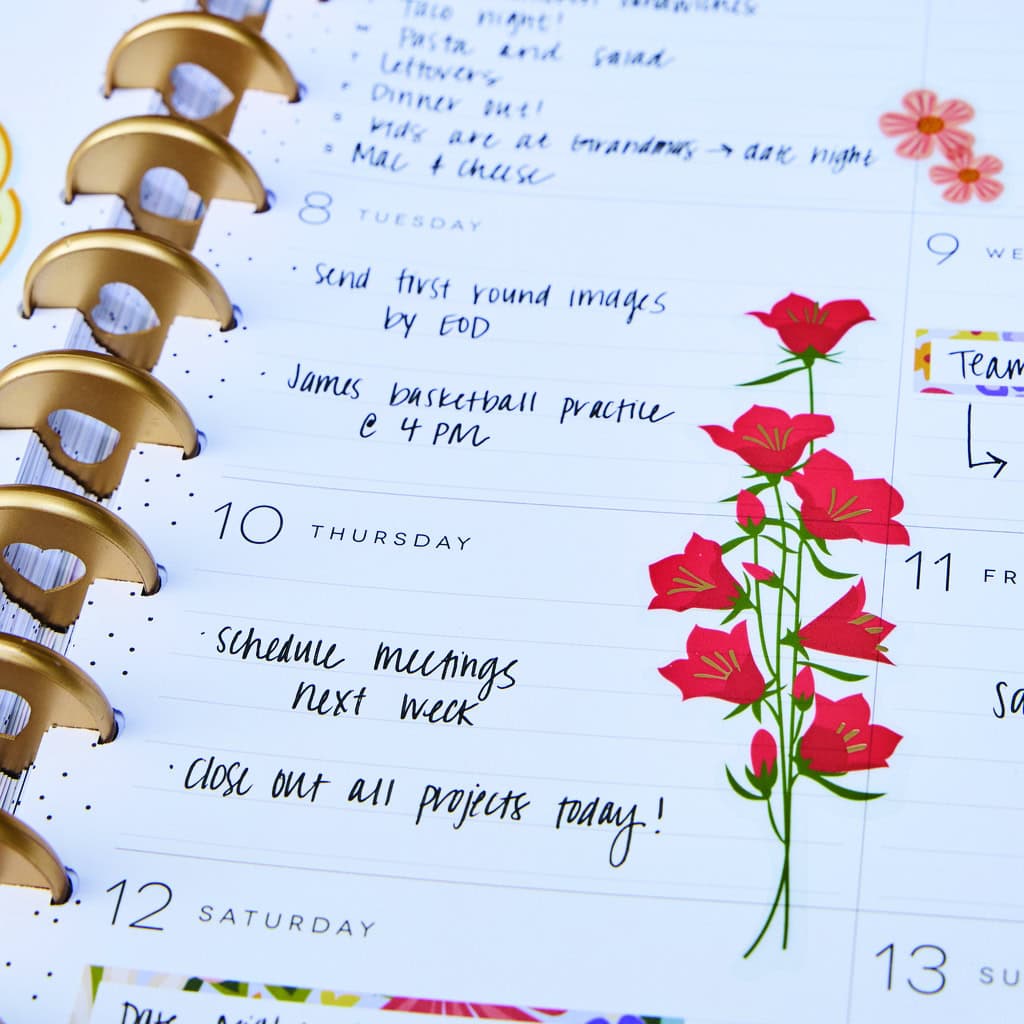 sandwiches
Taco night!
Pasta and salad
Leftovers
Dinner out!
kids are at Grandmas → date night
Mac + cheese
8 TUESDAY
send first round images
by EOD
James basketball practice
@ 4 PM
9 WE
Team
10 THURSDAY
schedule meetings
next week
close out all projects today!
11 FR
Sa
12 SATURDAY
Date night
13 SU